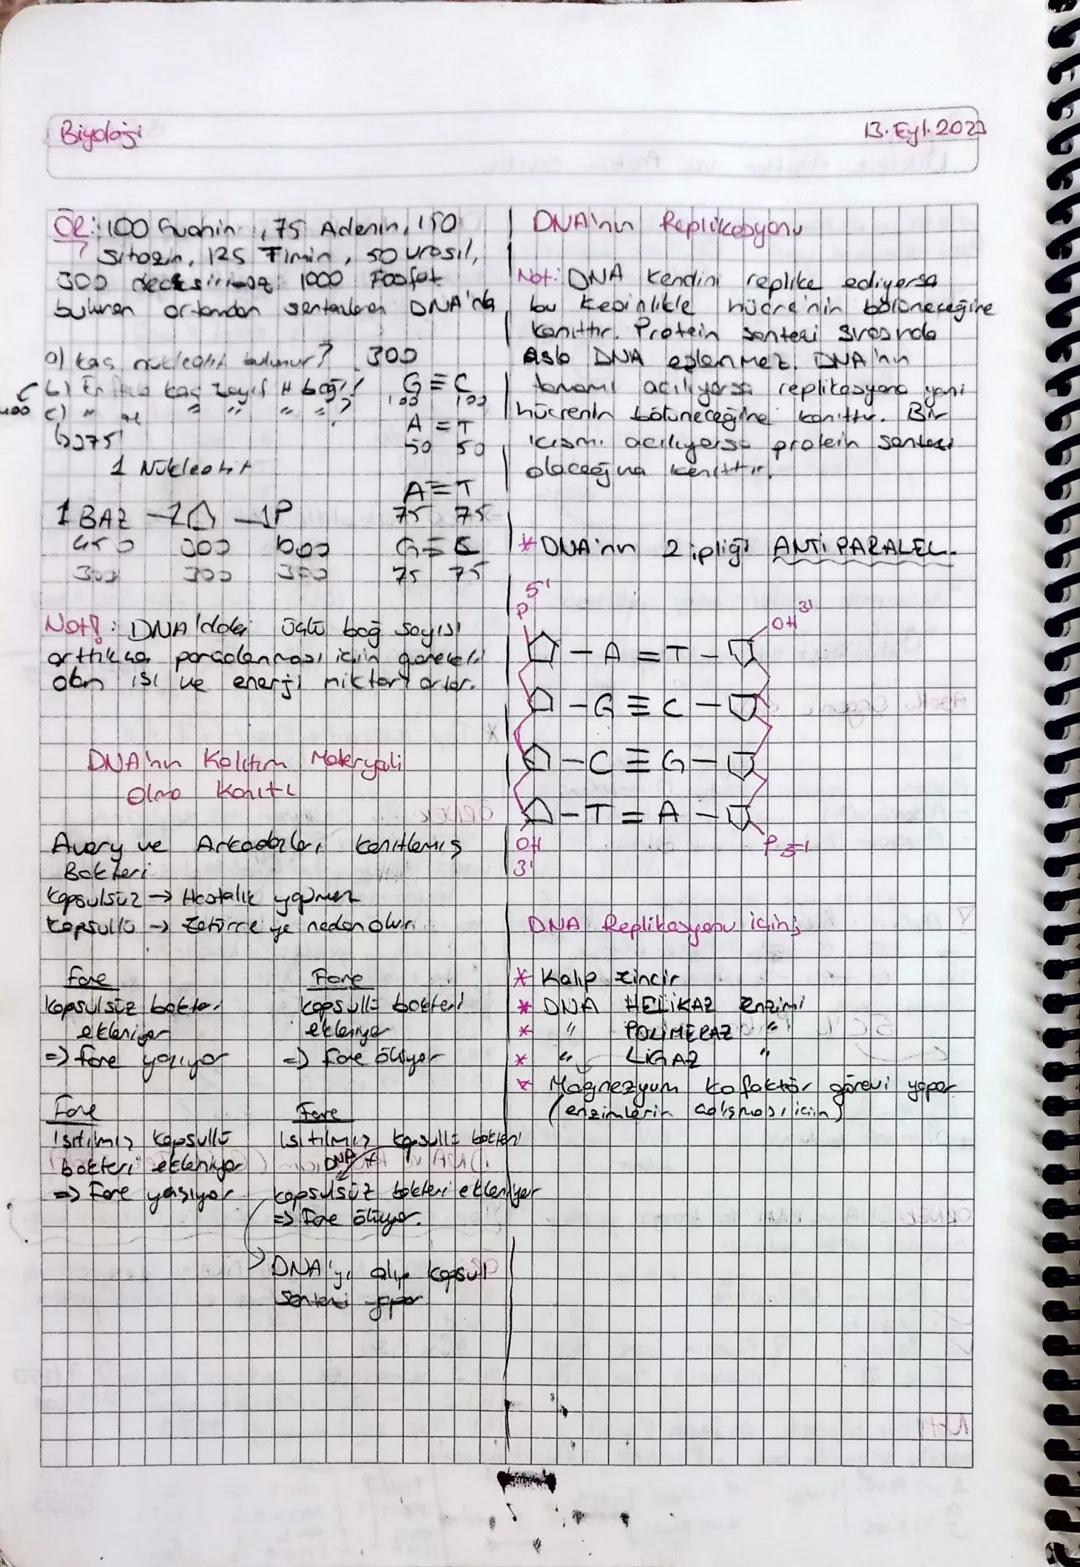 Biyoloji
13.Eyl.2023
ÖR: 100 Guanin, 75 Adenin, 150
Sitozin, 125 Timin, 50 urasil,
300 deoksiriboz 1000 Fosfat
bulunan ortamdan sentezlenen DNA'da
a) kaç nükleotit bulunur? 300
b) En kaç zayıf H bağı?
c) " " " " " ?
b) 375
1 Nükleotit
1 BAZ - 1 - 1P
450 300 1000
300 300 300
G≡C
100 100
A=T
50 50
A=T
75 75
G≡C
75 75
Not!: DNA'daki üçlü bağ sayısı
arttıkça parçalanması için gerekli
olan ısı ve enerji miktarı artar.
DNA'nın Kalıtım Materyali
Olma Kanıtı
Avery ve Arkadaşları kanıtlamış
Bakteri
kapsülsüz → Hastalık yapmaz
kapsüllü → Zatürre ye neden olur.
Fare
kapsülsüz bakteri
ekleniyor
=> fare yaşıyor
Fare
kapsüllü bakteri
ekleniyor
=> fare ölüyor
Fare
Isıtılmış kapsüllü
bakteri ekleniyor
=> Fare yaşıyor
Fare
Isıtılmış kapsüllü bakteri
DNA
kapsülsüz bakteri ekleniyor
=> Fare ölüyor.
DNA'yı alıp kapsül
sentezi yapar
DNA'nın Replikasyonu
Not: DNA kendini replike ediyorsa
bu kesinlikle hücre'nin bölüneceğine
kanıttır. Protein sentezi sırasında
asla DNA eşlenmez. DNA'nın
tamamı açılıyorsa replikasyona yani
hücrenin bölüneceğine kanıttır. Bir
kısmı açılıyorsa protein sentezi
olacağına kanıttır.
* DNA'nın 2 ipliği ANTİ PARALEL.
5'
P
OH 3'
- A = T -
- G ≡ C -
- C ≡ G -
- T = A -
OH
3'
P 5'
DNA Replikasyonu için;
* Kalıp zincir
* DNA HELİKAZ Enzimi
* " POLİMERAZ "
* " LİGAZ "
* Magnezyum kofaktör görevi yapar
(enzimlerin çalışması için)